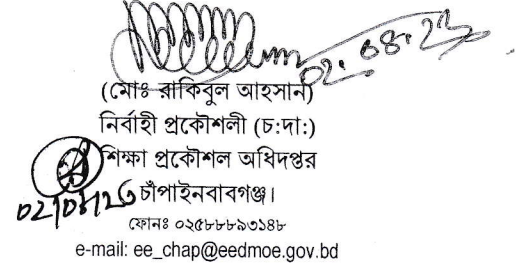 02.08.23
(মোঃ রাকিবুল আহসান)
নির্বাহী প্রকৌশলী (চ:দা:)
শিক্ষা প্রকৌশল অধিদপ্তর
চাঁপাইনবাবগঞ্জ।
ফোনঃ ০২৫৮৮৮৯৩১৪৮
e-mail: ee_chap@eedmoe.gov.bd